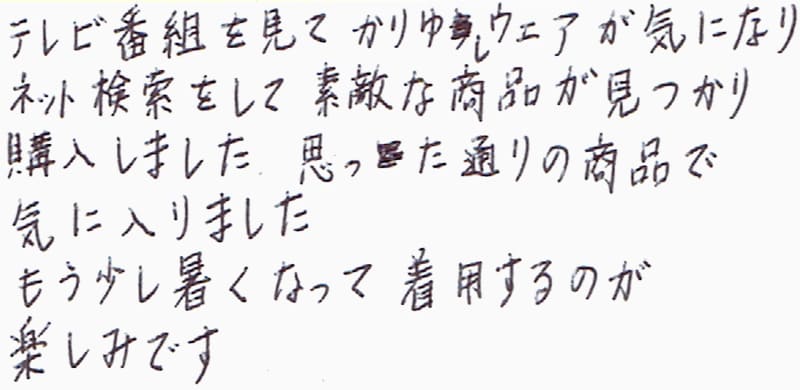 テレビ番組を見てかりゆしウェアが気になり
ネット検索をして素敵な商品が見つかり
購入しました 思った通りの商品で
気に入りました
もう少し暑くなって着用するのが
楽しみです